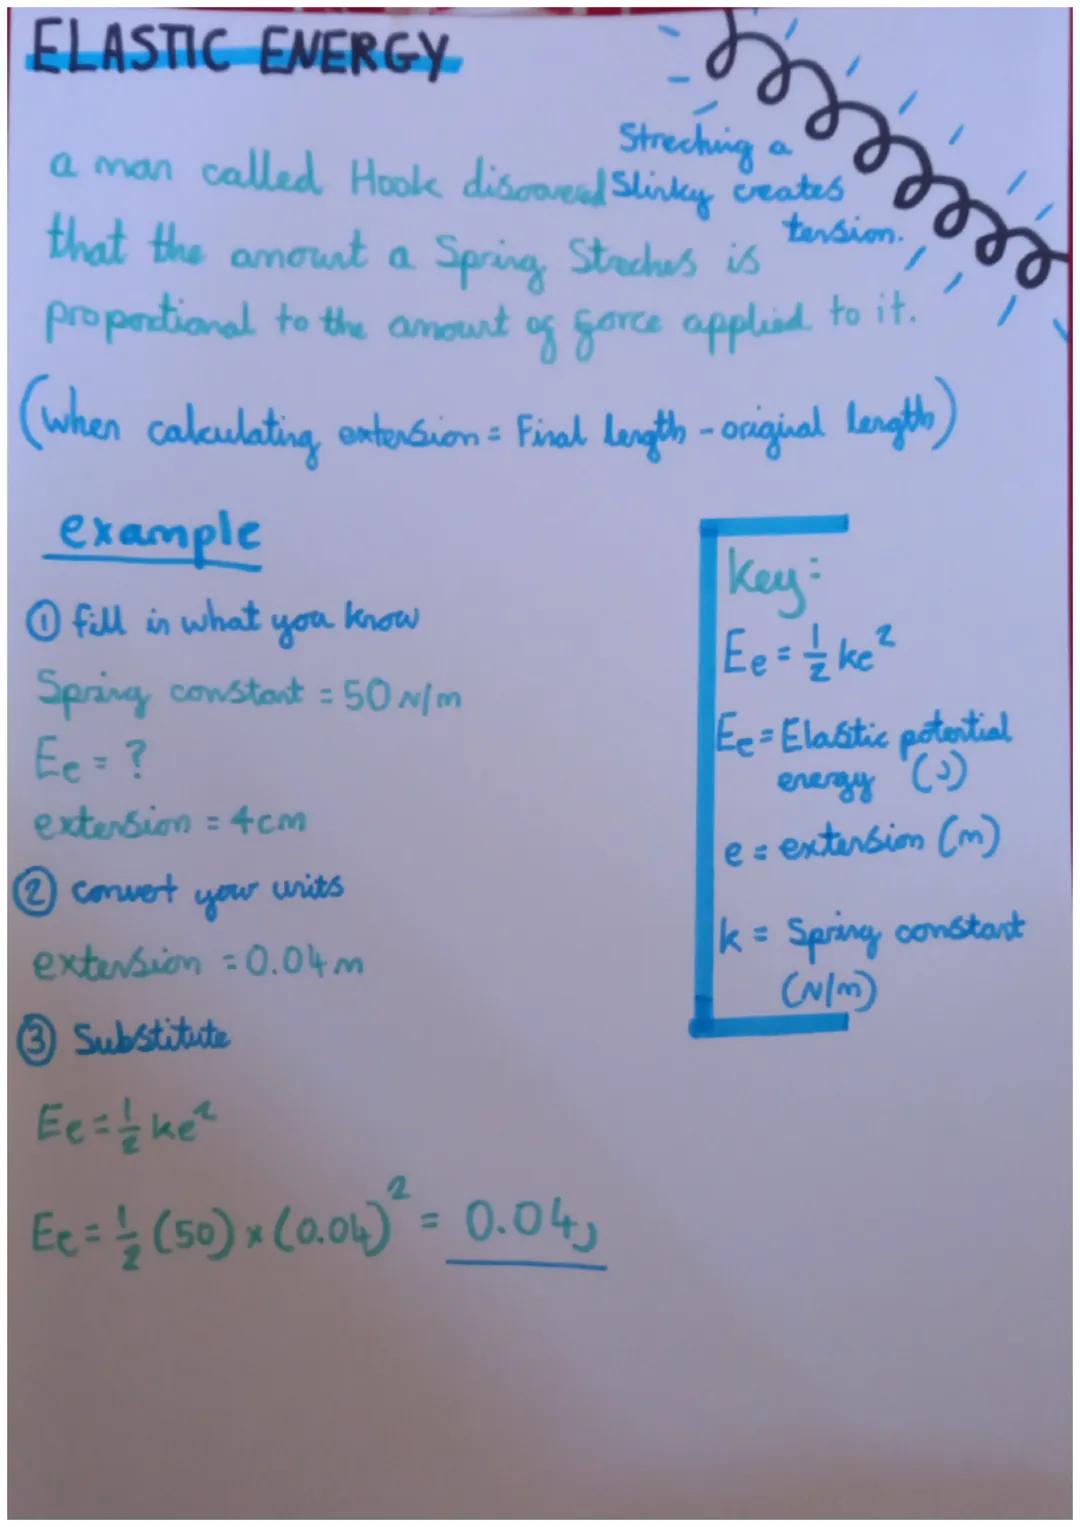 ELASTIC ENERGY
Streching a
Slinky creates
tension.
a man called Hook discovered
that the amount a Spring Streches is
proportional to the amount of force applied to it.
(when calculating extension = Final length - original length)
example
① fill in what you know
Spring constant = 50 N/m
Ee = ?
extension = 4cm
② convert your units
extension = 0.04m
③ Substitute
Ee = ½ ke²
Ee = ½ (50) × (0.04)² = 0.04J
key:
Ee = ½ ke²
Ee = Elastic potential
energy (J)
e = extension (m)
k = Spring constant
(N/m)